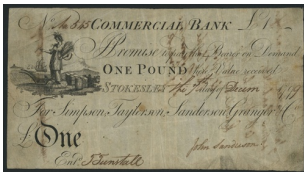 No. B 545 COMMERCIAL BANK £ 1
I Promise to pay the Bearer on Demand
ONE POUND here Value received
STOKESLEY the 7th day of 1819
For Simpson, Taylerson, Sanderson, Granger & Co.
£ One John Sanderson
Entd. J Tunstall